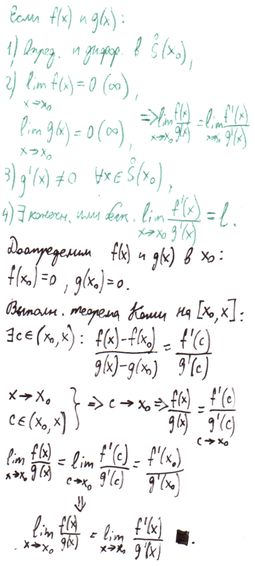 Если f(x) и g(x):
1) Опред. и дифф. в S̊(x₀),
2) lim f(x) = 0 (∞),
x→x₀
lim g(x) = 0 (∞), ⇒ lim f(x)/g(x) = lim f'(x)/g'(x)
x→x₀ x→x₀ x→x₀
3) g'(x) ≠ 0 ∀x∈S̊(x₀),
4) ∃ конечн. или беск. lim f'(x)/g'(x) = l.
x→x₀
Доопределим f(x) и g(x) в x₀:
f(x₀)=0, g(x₀)=0.
Выполн. теорема Коши на [x₀,x]:
∃c∈(x₀,x): f(x)-f(x₀)/g(x)-g(x₀) = f'(c)/g'(c)
x→x₀
c∈(x₀,x) } ⇒ c→x₀ ⇒ f(x)/g(x) = f'(c)/g'(c)
c→x₀
lim f(x)/g(x) = lim f'(c)/g'(c) = f'(x₀)/g'(x₀)
x→x₀ c→x₀
⇓
lim f(x)/g(x) = lim f'(x)/g'(x) ■.
x→x₀ x→x₀